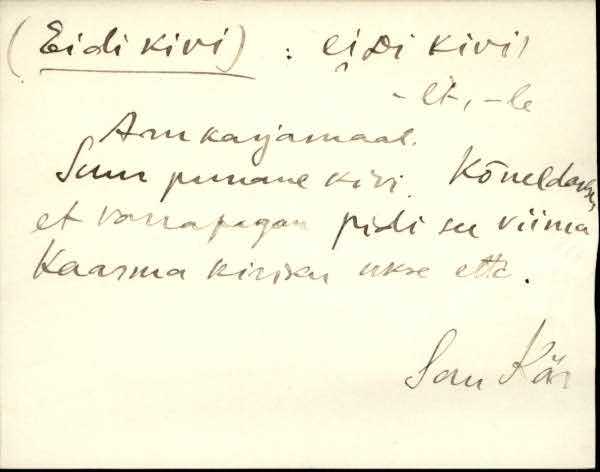 (Eidi kivi) : eiDi kivi,
-lt, -le
Arukarjamaal.
Suur punane kivi. Kõneldakse,
et vanapagan pidi se viima
Kaarma kiriku ukse ette.
Kär